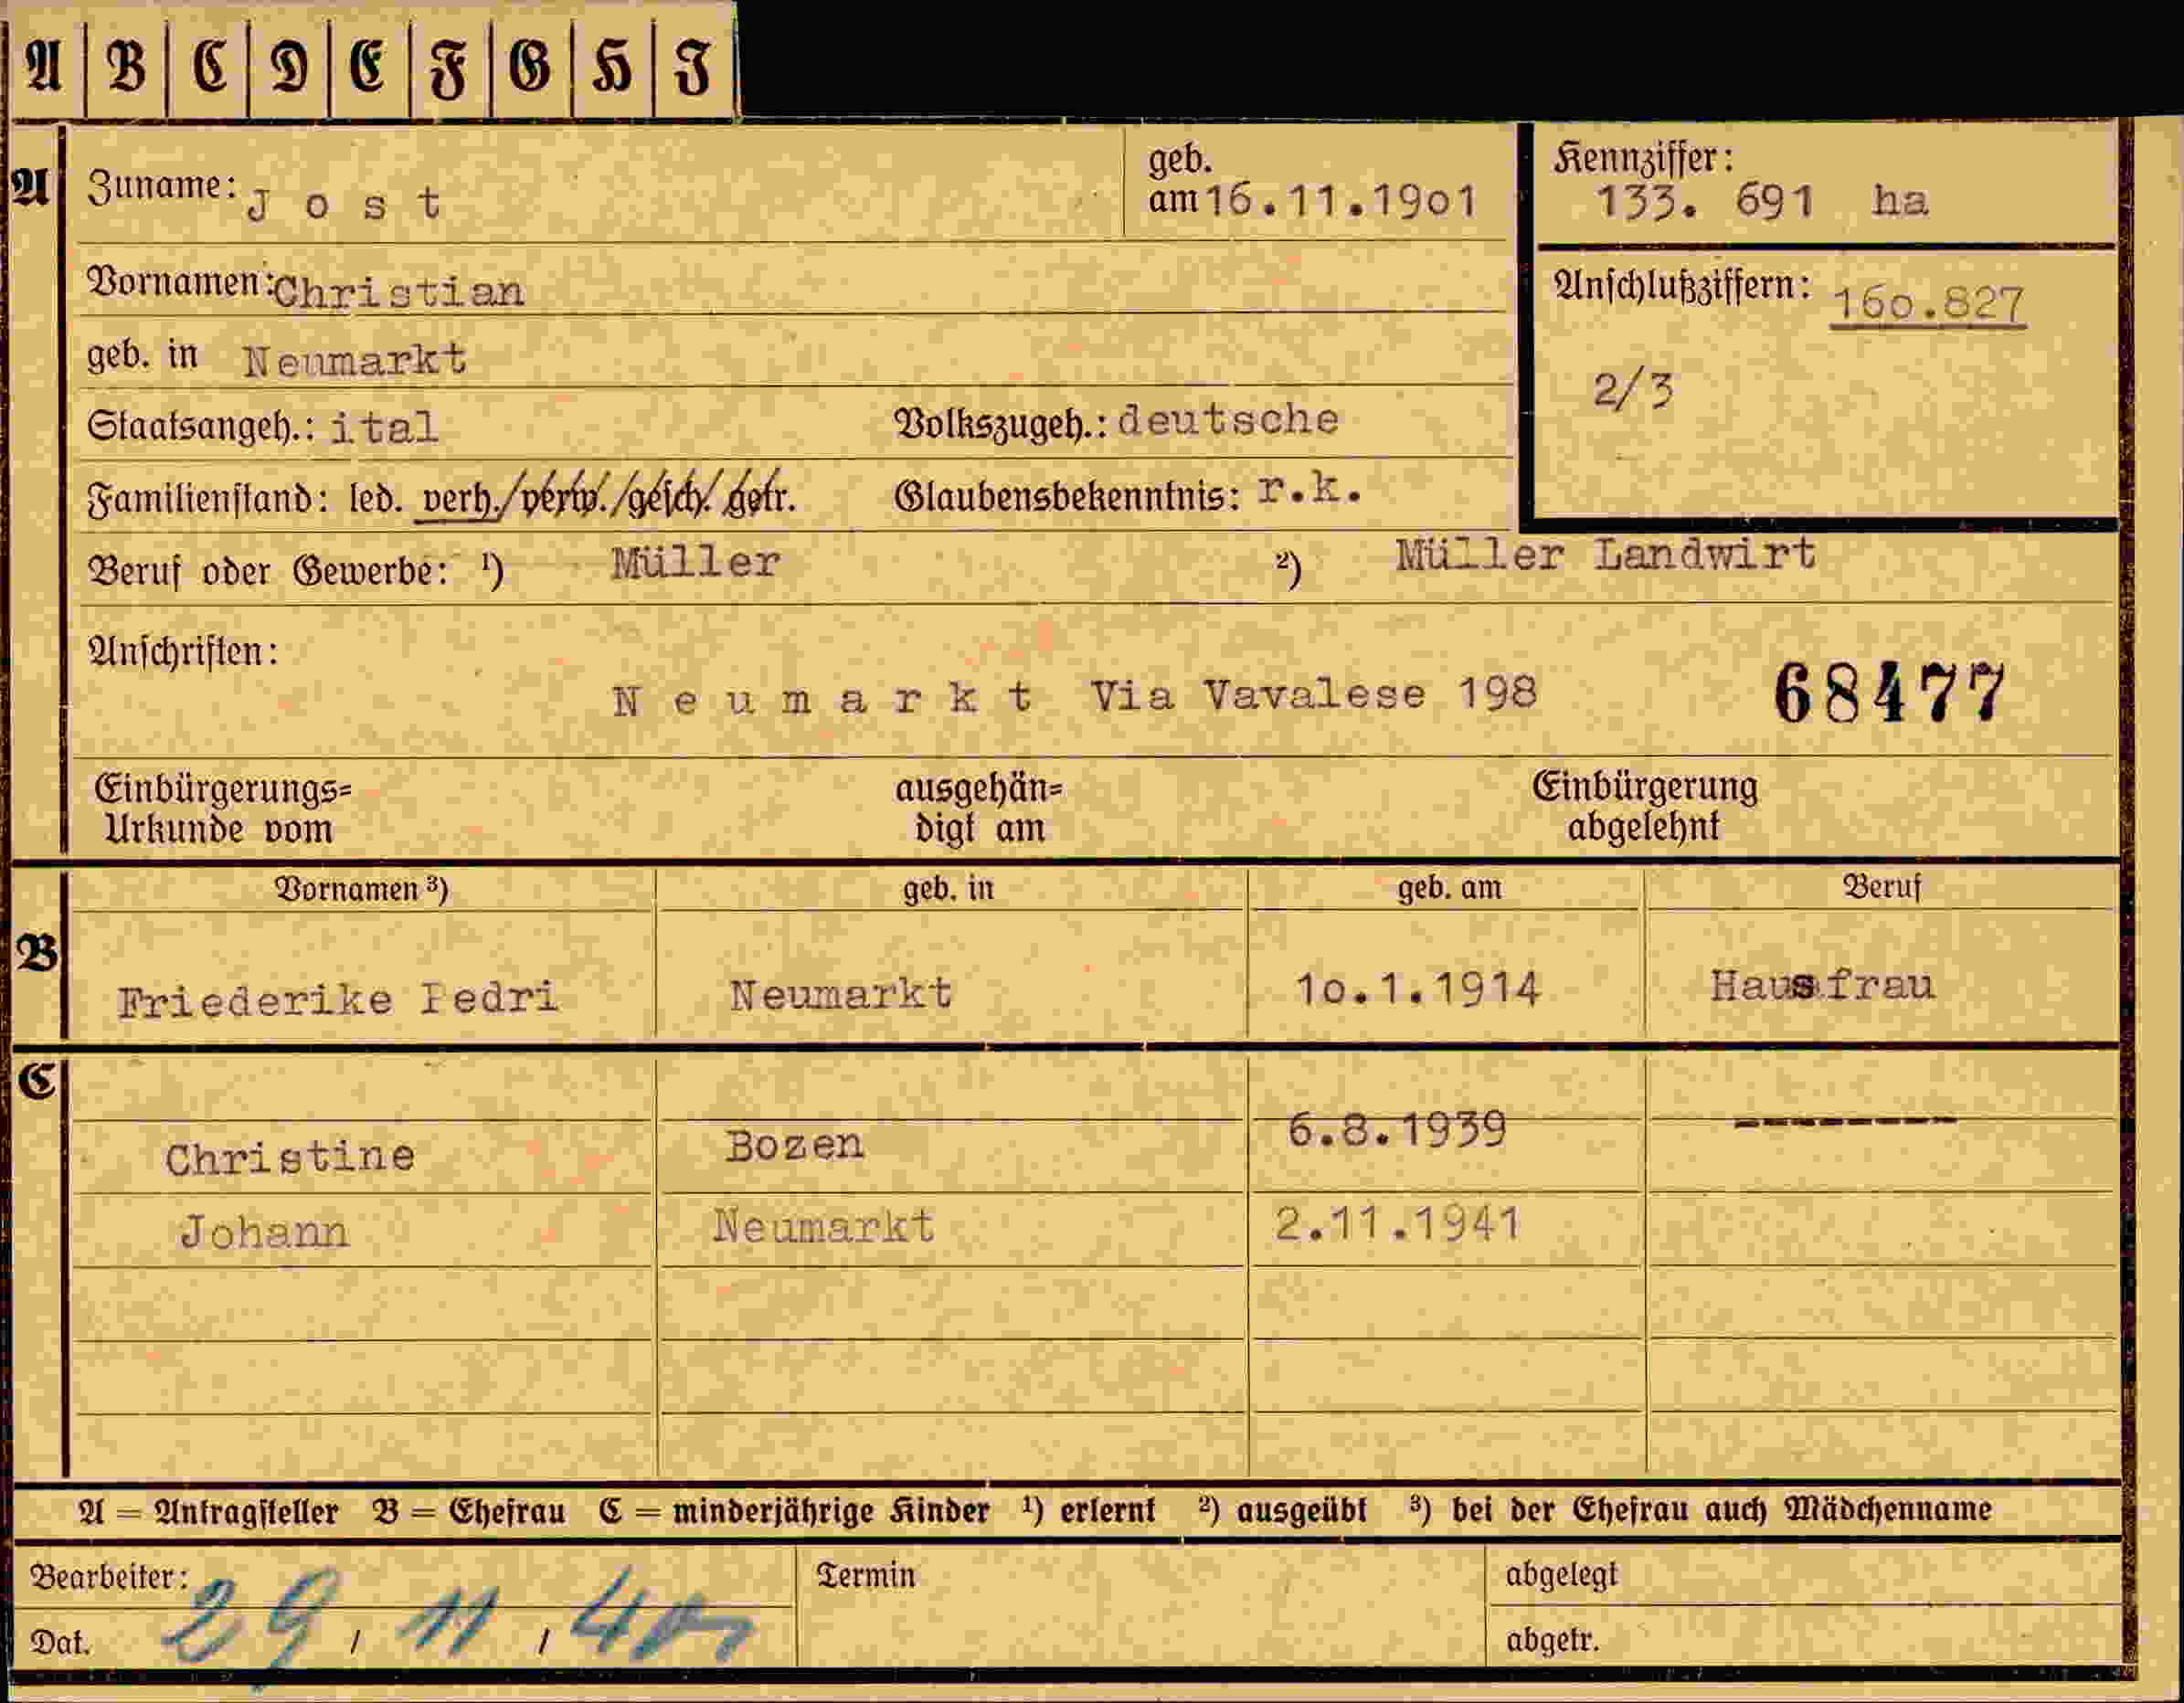 A B C D E F G H I
A Zuname: Jost geb. am 16.11.1901 Kennziffer: 133. 691 ha
Vornamen: Christian Anschlußziffern: 160.827
geb. in Neumarkt 2/3
Staatsangeh.: ital Volkszugeh.: deutsche
Familienstand: led. verh./verw./gesch./getr. Glaubensbekenntnis: r.k.
Beruf oder Gewerbe: ¹) Müller ²) Müller Landwirt
Anschriften:
Neumarkt Via Vavalese 198 68477
Einbürgerungs= ausgehän= Einbürgerung
Urkunde vom digt am abgelehnt
Vornamen ³) geb. in geb. am Beruf
B Friederike Pedri Neumarkt 10.1.1914 Hausfrau
C
Christine Bozen 6.8.1939 --------
Johann Neumarkt 2.11.1941
A = Antragsteller B = Ehefrau C = minderjährige Kinder ¹) erlernt ²) ausgeübt ³) bei der Ehefrau auch Mädchenname
Bearbeiter: Termin abgelegt
Dat. 29 / 11 / abgetr.